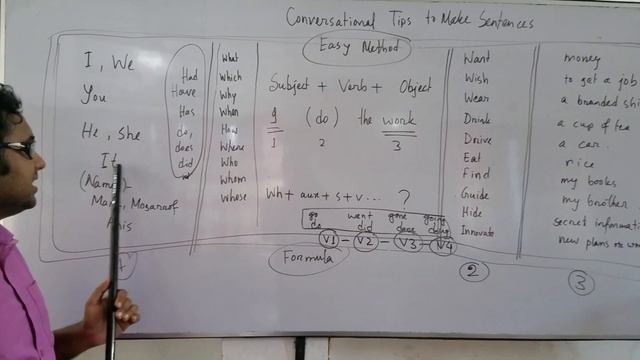 Conversational Tips to Make Sentences
Easy Method
I, We
You
He, She
It
(Name)
Anis
Had
Have
Has
do,
does
did
What
Which
Why
When
How
Where
Who
Whom
Whose
Subject + Verb + Object
I (do) the work
1 2 3
Wh + aux + s + v ... ?
go went gone going
do did done doing
V1 - V2 - V3 - V4
Formula
Want
Wish
Wear
Drink
Drive
Eat
Find
Guide
Hide
Innovate
2
money
to get a job
a branded
a cup of tea
a car
rice
my books
my brother
secret
new plans
3